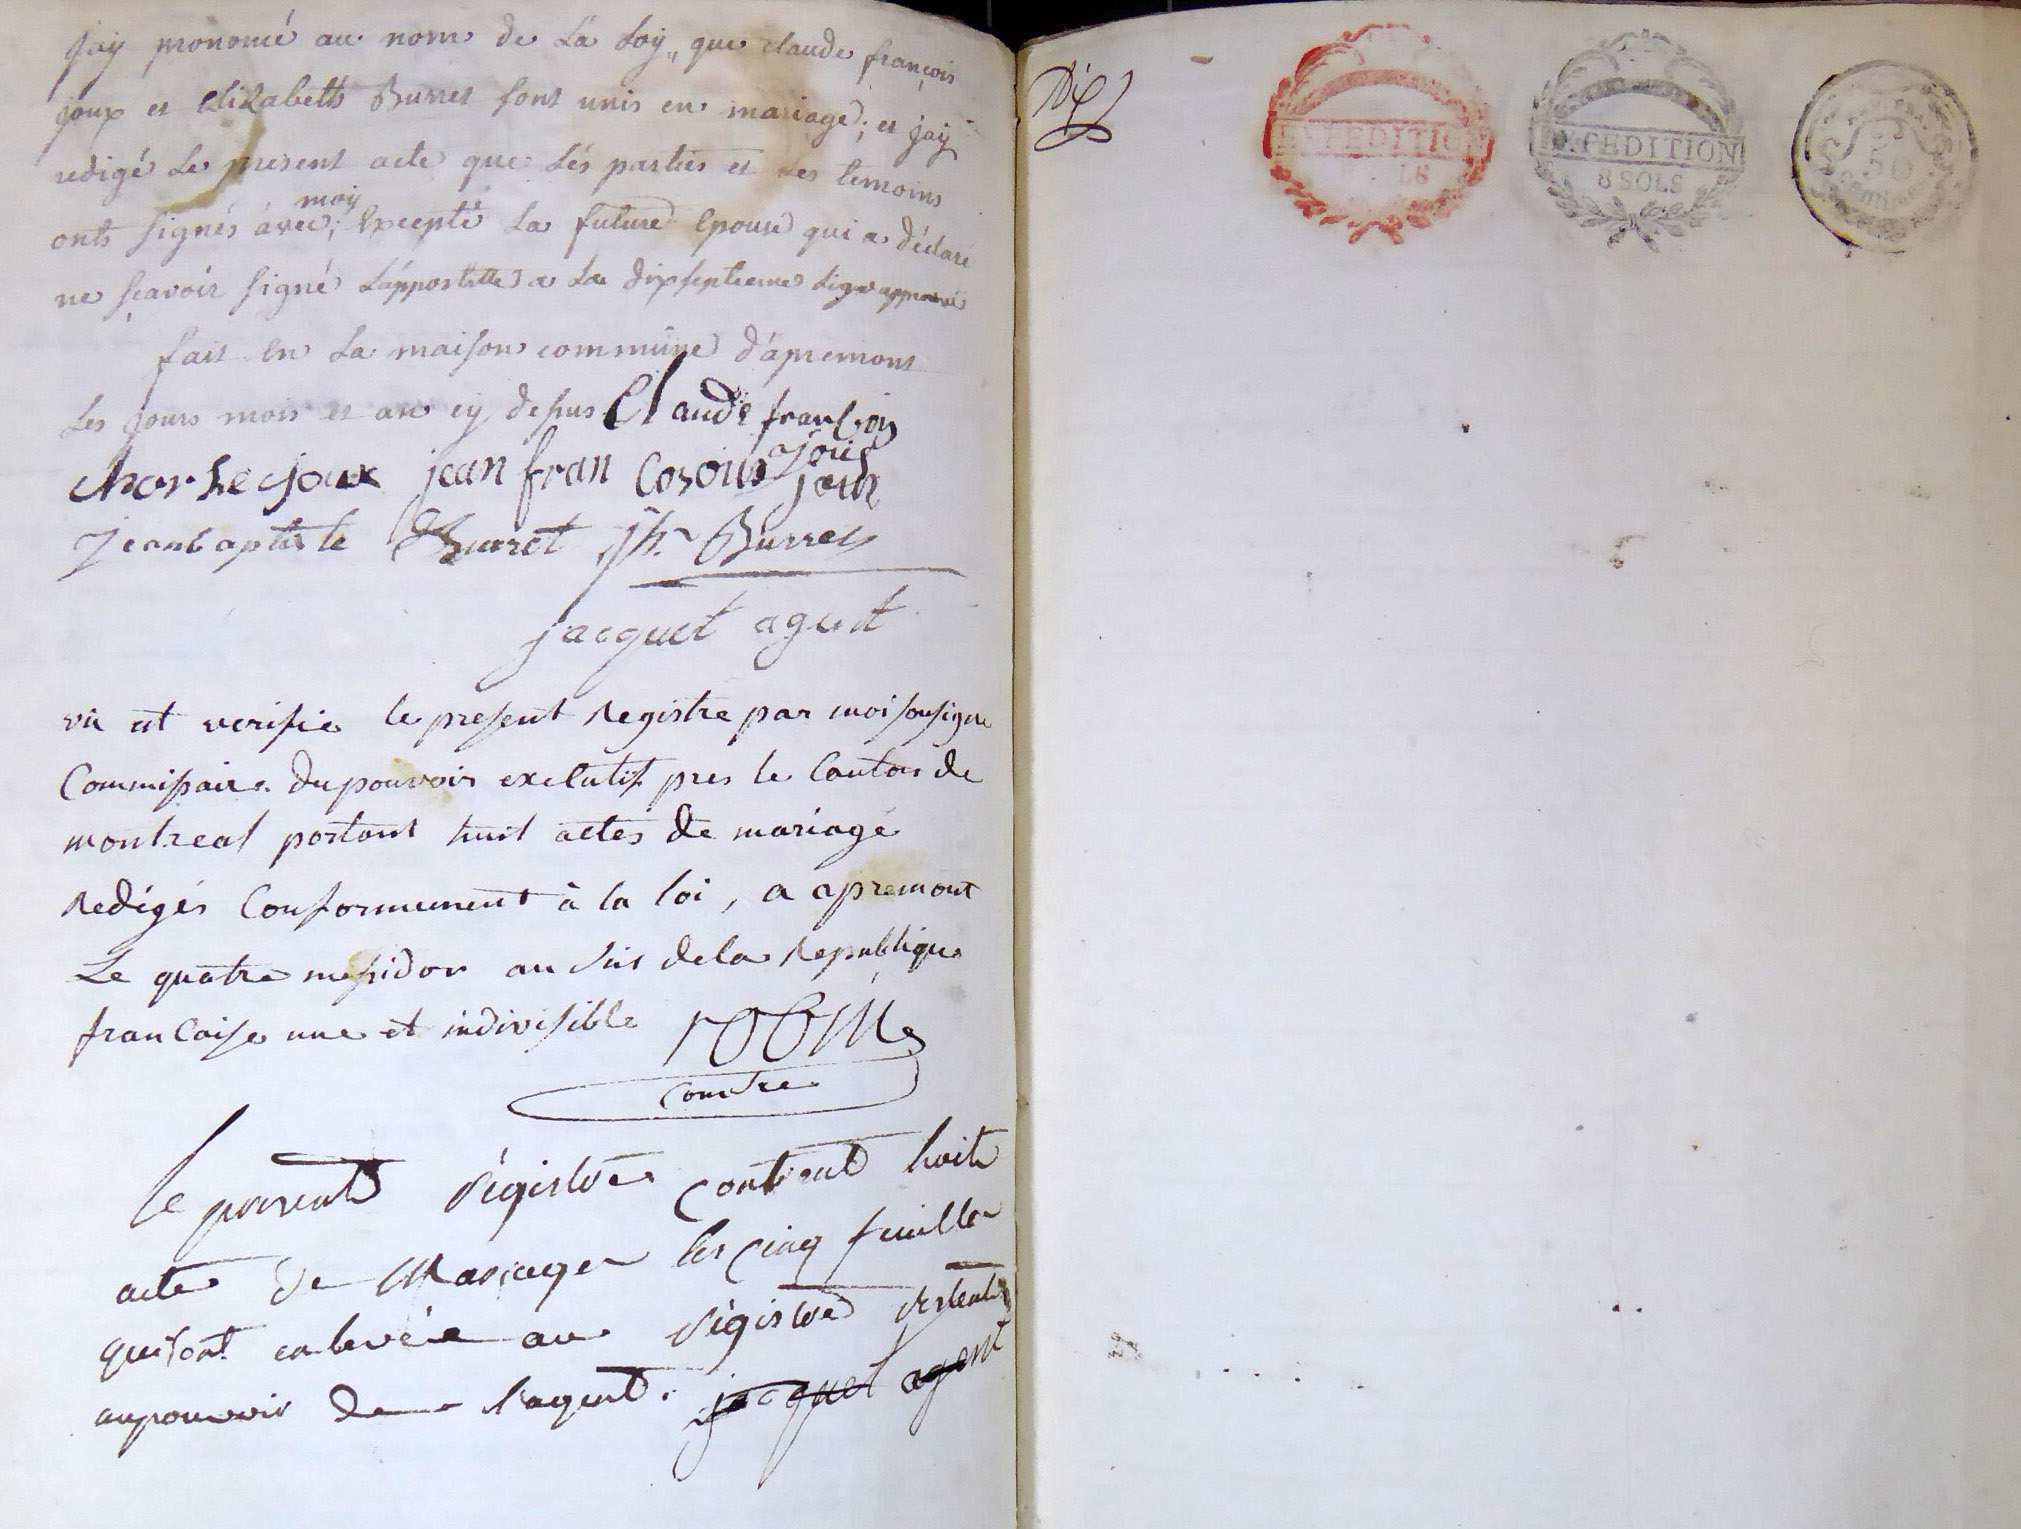 jay prononcé au nom de La Loy,, que claude françois
joux et elizabeth Burret sont unis en mariage; et jay
redigé Le present acte que Lés parties et Les temoins
onts signés avec moy; Excepté La future Epouse qui a déclaré
ne sçavoir signé Láppostille a La dixseptieme Ligne approuvé
fait en La maison commune dápremont
Les jours mois et an cy desus Claude françois
joux
charle joux jean fran cosois joux
Jeanbaptiste Burret jh. Burret
jacquet agent
vû et verifié le present Registre par moi sousigné
Commissaire du pouvoir exécutif pres le Canton de
montreal portant huit actes de mariage
Redigés Conformement à la loi, a apremont
Le quatre messidor an Six dela Republique
francaise une et indivisible robin
Comsre
le present régistre contient huit
acte de Mariages les cinq feuille
qui sont enlevée au régistre restent
aupouvoir de l'agent. jacquet agent
EXPEDITION
LS
EXPEDITION
8 SOLS
50
centimes